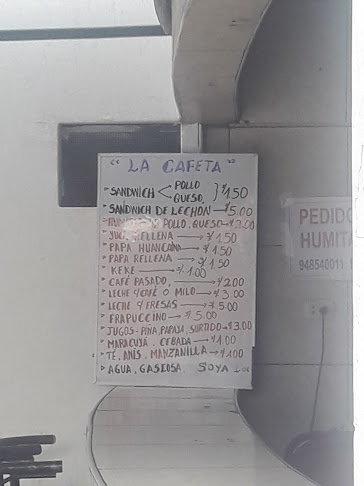 "LA CAFETA"
* SANDWICH < POLLO
QUESO, } S/1,50
* SANDWICH DE LECHON → S/5.00
POLLO, QUESO → S/2.00
RELLENA → S/1.50
* PAPA HUANCAINA → S/1.50
* PAPA RELLENA → S/1.50
* KEKE → S/1.00
* CAFÉ PASADO, → S/2.00
* LECHE Y CAFÉ O MILO → S/3.00
* LECHE Y FRESAS → S/5.00
* FRAPUCCINO → S/5.00
* JUGOS - PIÑA, PAPAYA, SURTIDO → S/3.00
* MARACUYÁ, CEBADA → S/1.00
* TÉ, ANÍS, MANZANILLA → S/1.00
* AGUA, GASEOSA, SOYA
PEDIDO
HUMITA
948540011